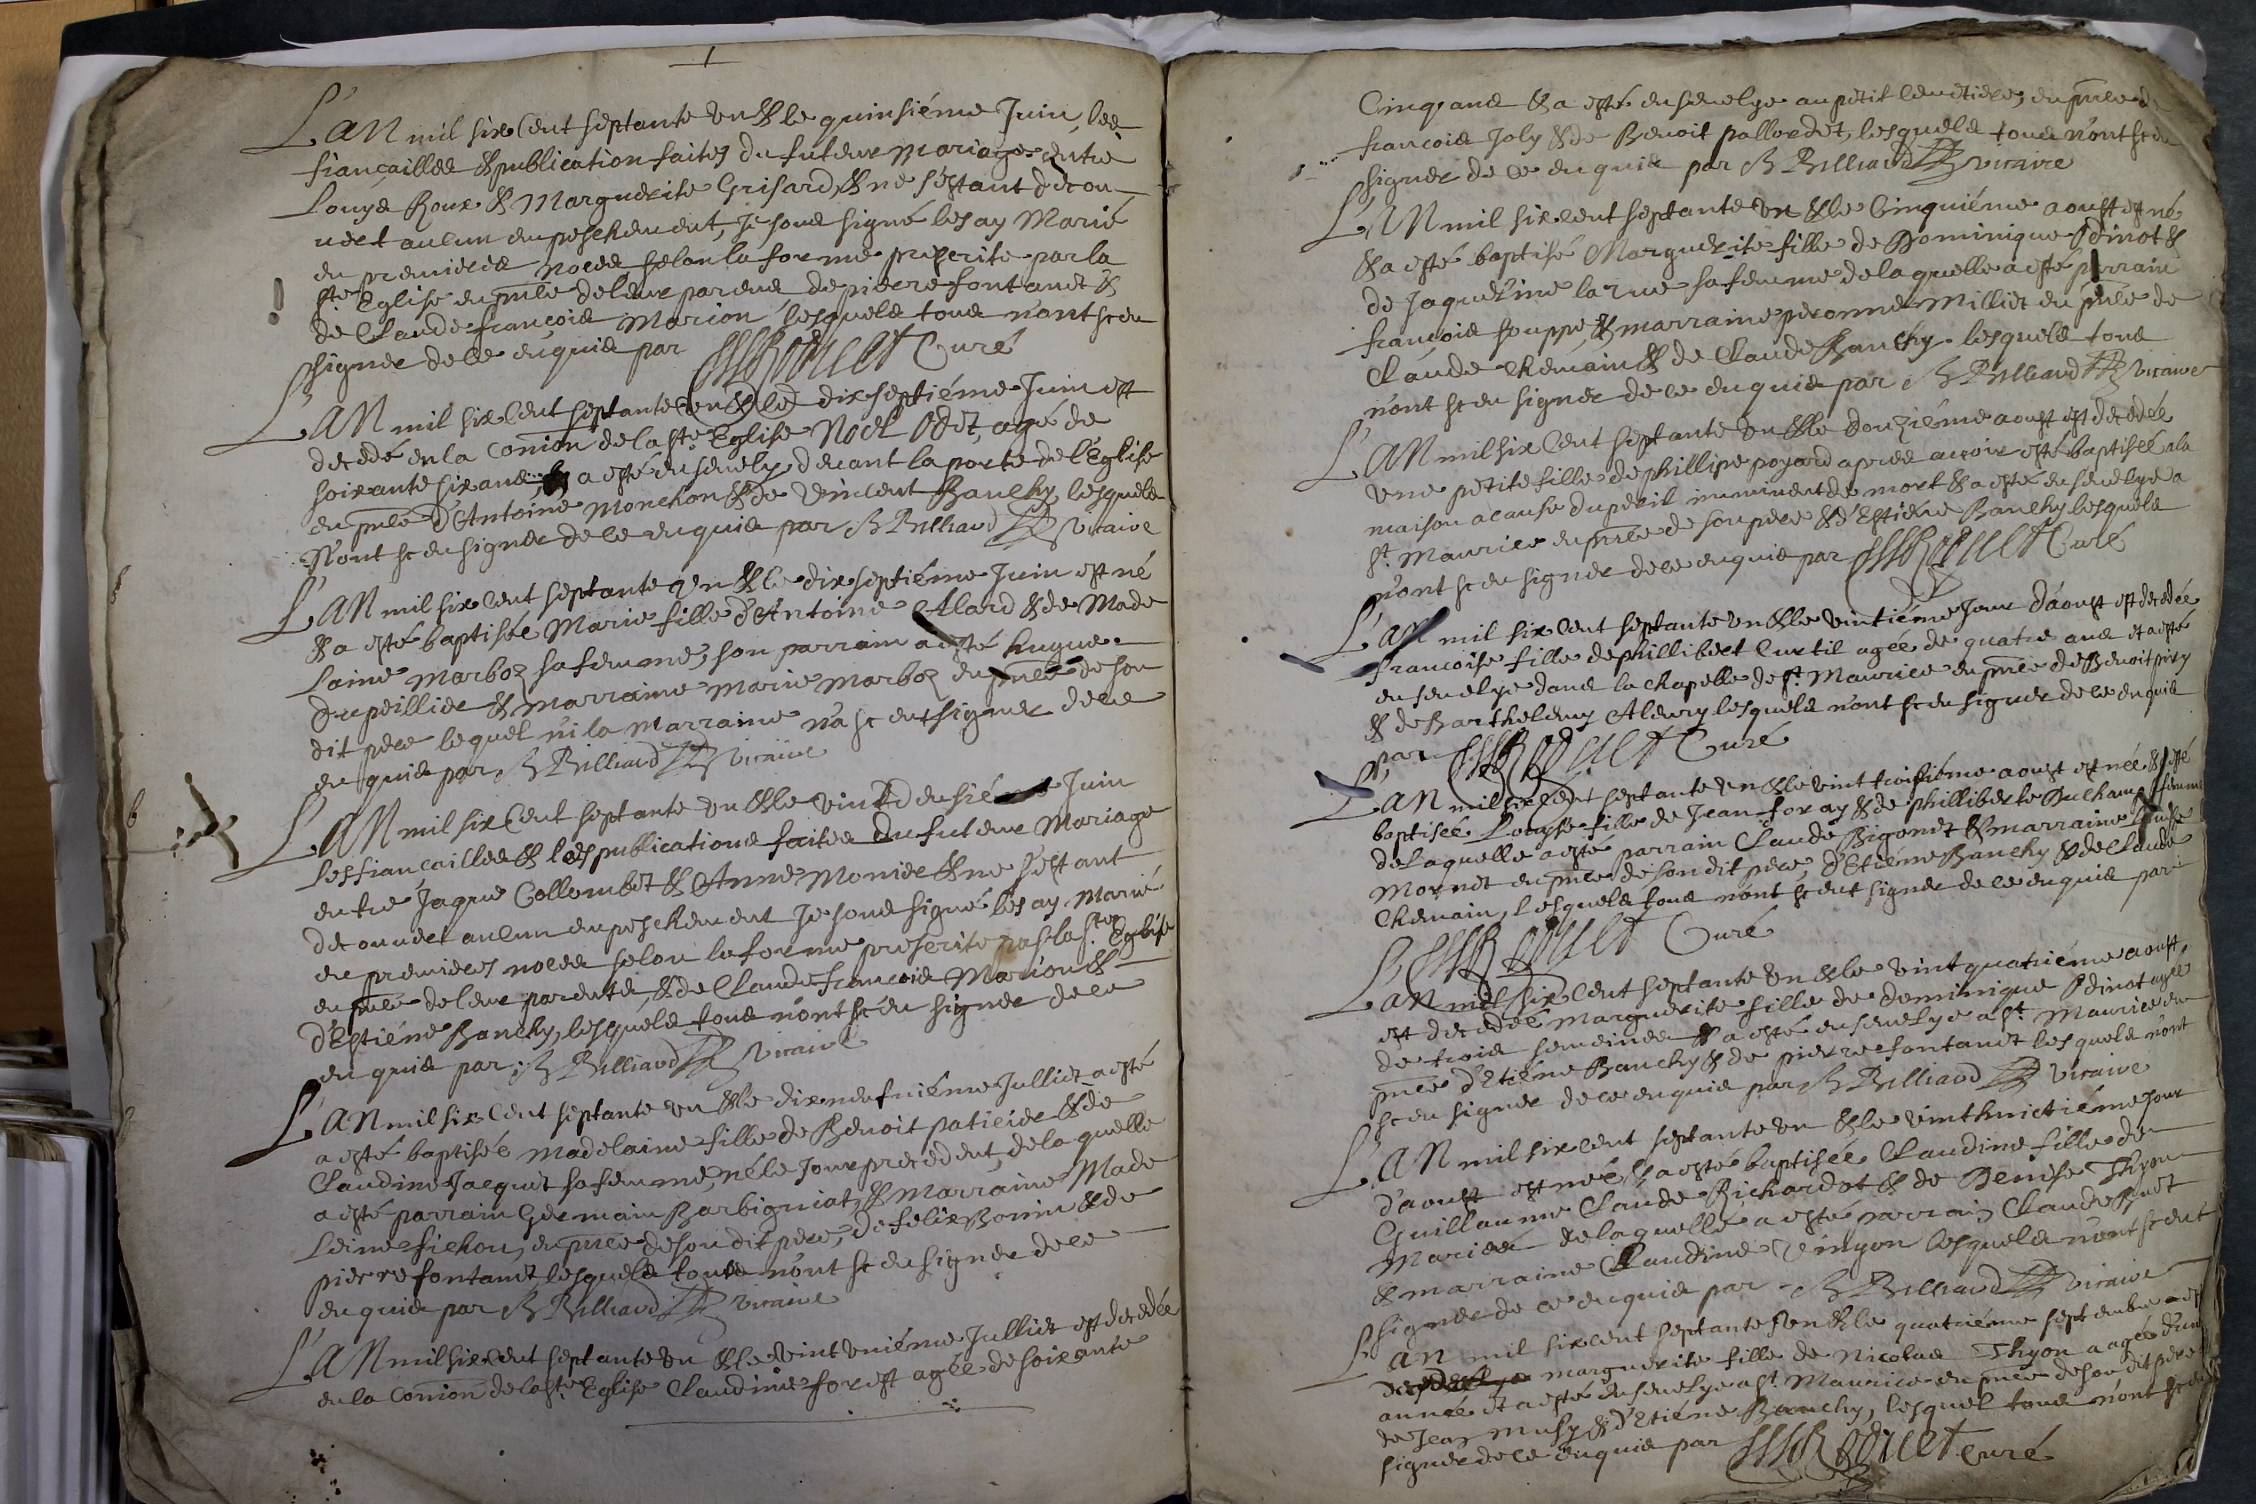 L'AN mil six Cent septante un & le quinsiéme Juin, les
fiançailles & publication faites du futeur Mariage entre
Louys Roux & Marguerite Grisard, & ne s'estant décou
vert aucun empeschement, Je sous signé les ay Marié
en premieres noces selon la forme prescrite par la
ste Eglise en pnce de leur parens de pierre fontanet &
de Claude françois Marion lesquels tous n'ont sceu
signer de ce enquis par Curé
L'AN mil six Cent septante un & le dix septiéme Juin est
decedé en la Comion de la ste Eglise Noël Odet, agé de
soixante six ans, & a esté ensevely devant la porte de l'Eglise
en pnce d'Antoine Monchon & de Vincent Banchy, lesquels
N'ont sceu signer de ce enquis par B Billiaud vicaire
L'AN mil six Cent septante Un & le dix septiéme Juin est né
& a esté baptisée Marie fille d'Antoine Alard & de Made
laine Marboz sa femme, son parrain a esté hugue
Dupeillier & marraine Marie Marboz en pnce de son
dit pere lequel ni la Marraine n'a sceut signer de ce
enquis par B Billiaud vicaire
L'AN mil six Cent septante un & le vint deusiéme Juin
les fiançailles & les publications faites du futeur Mariage
entre Jaque Collombet & Anne Monier & ne s'estant
decouvert aucun empeschement Je sous signé les ay Marié
en premieres noces selon la forme prescrite par la ste Eglise
en pnce de leur parents, & de Claude françois Marion &
d'Estiéne Banchy, lesquels tous n'ont sceu signer de ce
enquis par B Billiaud vicaire
L'AN mil six Cent septante un & le dix neufuiéme Julliet a esté
a esté baptisée Madelaine fille de Benoit patissier & de
Claudine Jacquet sa femme, née le Jour precedent, de la quelle
a esté parrain Germain Barbigniat, & Marraine Made
leine fichon, en pnce de son dit pere, de felix Bonin & de
pierre fontanet, lesquels tous n'ont sceu signer de ce
enquis par B Billiaud vicaire
L'AN mil six Cent septante un & le vint uniéme Julliet est decedée
en la Comion de la ste Eglise Claudine forest agée de soixante
Cinq ans & a esté ensevelye au petit Cemetiere, en pnce de
françois Joly & de Benoit pallordet, lesquels tous n'ont sceu
signer de ce enquis par B Billiaud vicaire
L'AN mil six cent septante un & le Cinquiéme aoust est né
& a esté baptisé Marguerite fille de Dominique Odinot &
de Jaquesine larue sa femme de la quelle a esté parrain
françois souppe, & marraine peronne Milliet en pnce de
Claude Chemain & de Claude Banchy lesquels tous
n'ont sceu signer de ce enquis par B Billiaud vicaire
L'AN mil six Cent septante un & le douziéme aoust est decedée
une petite fille de phillipe poyard apres avoir esté baptisée a la
maison a cause du peril imminent de mort & a esté ensevelye a
st. Maurice en pnce de son pere & d'Estiéne Banchy lesquels
n'ont sceu signer de ce enquis par Curé
L'an mil six Cent septante un & le vintiéme Jour d'aoust est decedée
francoise fille de phillibert Curtil agée de quatre ans et a esté
ensevelye dans la Chapelle de st. Maurice en pnce de Benoit
& de Barthelemy Aleury lesquels n'ont sceu signer de ce enquis
par Curé
L'AN mil six Cent septante un & le vint troisiéme aoust est née & esté
baptisée Louyse fille de Jean foray & de philliberte Duchamp sa femme
de laquelle a esté parrain Claude Bigonet & marraine Louise
Mornet en pnce de son dit pere, d'Etiéne Banchy & de Claude
Chemain, lesquels tous n'ont sceut signer de ce enquis par
Curé
L'an mil six Cent septante un & le vint quatriéme aoust,
est decedée Marguerite fille de dominique Odinot agée
de trois semeines & a esté ensevelye a st. Maurice en
pnce d'Etiéne Banchy & de pierre fontanet lesquels n'ont
sceu signer de ce enquis par B Billiaud vicaire
L'AN mil six cent septante un & le vinthuictiéme Jour
d'aoust est née & a esté baptisée Claudine fille de
Guillaume Claude Richardot & de Denise Thyon
Mariés de laquelle a esté parrain Claude
& marraine Claudine Vinyon lesquels n'ont sceut
signer de ce enquis par B Billiaud vicaire
L'an mil six cent septante un & le quatriéme septembre est
marguerite fille de Nicolas Thyon agée d'un
année et a esté ensevelye a st. Maurice en pnce de son dit pere
de Jean Musy & d'Etiéne Banchy, lesquel tous n'ont sceu
signer de ce enquis par Curé